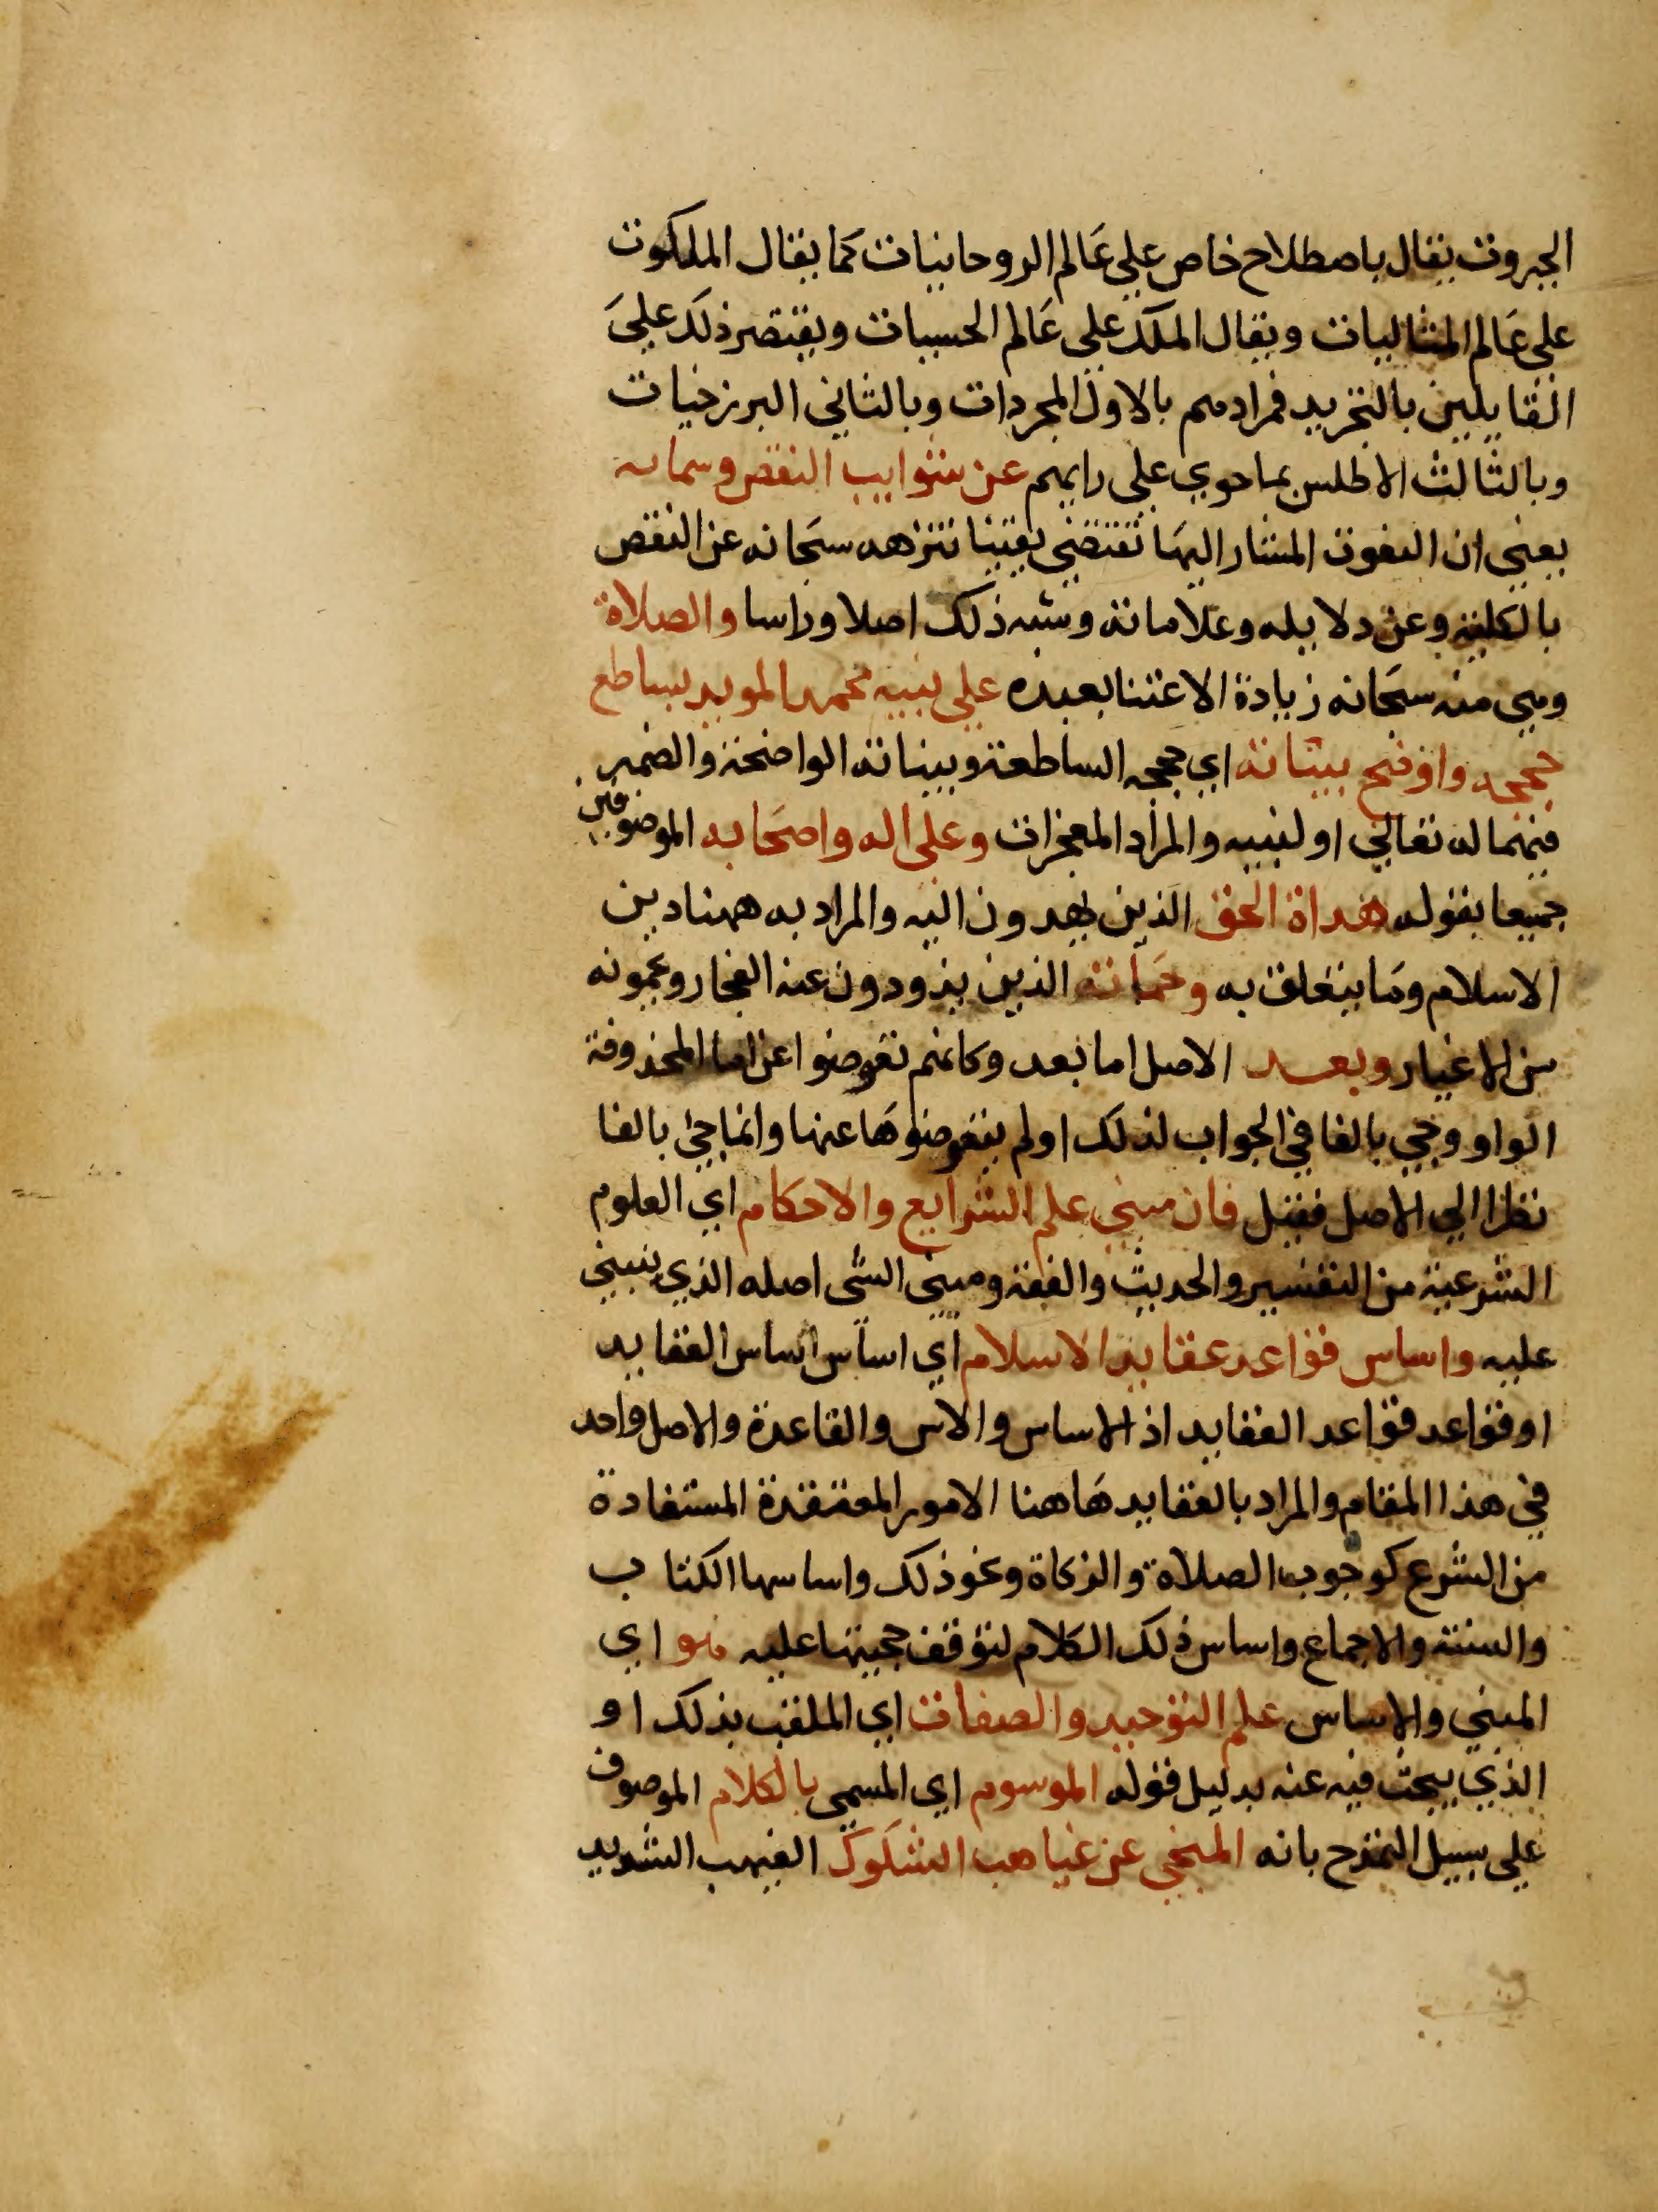 الجبروت يقال باصطلاح خاص على عالم الروحانيات كما يقال الملكوت
على عالم المثاليات ويقال الملك على عالم الحسيات ويقتصر ذلك على
القايلين بالتجريد فمرادهم بالاول المجردات وبالثاني البرزخيات
وبالثالث الاطلس بما حوى على رايهم عن شوايب النقص وسماته
يعني ان النعوت المشار اليها تقتضي يقينا تنزهه سبحانه عن النقص
بالكلية وعن دلايله وعلاماته وشبه ذلك اصلا وراسا والصلاة
وهي منه سبحانه زيادة الاعتنا بعبده على نبيه محمد المويد بساطع
حججه واوضح بيناته اي حججه الساطعة وبيناته الواضحة والضمير
فيهما له تعالى او لنبيه والمراد المعجزات وعلى اله واصحابه الموصوفين
جميعا بقوله هداة الحق الذين يهدون اليه والمراد به ههنا دين
الاسلام وما يتعلق به وحماته الذين يذودون عنه الفجار ويحمونه
من الاغيار وبعد الاصل اما بعد وكانهم تعوضوا عن اما المحذوفة
الواو وجي بالفا في الجواب لذلك او لم يتعوضوها عنها وانما جئ بالفا
نظرا الى الاصل فقيل فان مبنى علم الشرايع والاحكام اي العلوم
الشرعية من التفسير والحديث والفقه ومبنى الشى اصله الذي ينبني
عليه واساس قواعد عقايد الاسلام اي اساس اساس العقايد
او قواعد قواعد العقايد اذ الاساس والاس والقاعدة والاصل واحد
في هذا المقام والمراد بالعقايد هاهنا الامور المعتقدة المستفادة
من الشرع كوجوب الصلاة والزكاة ونحو ذلك واساسها الكتاب
والسنة والاجماع واساس ذلك الكلام لتوقف حجيتها عليه هو اي
المبنى والاساس علم التوحيد والصفات اي الملقب بذلك او
الذي يبحث فيه عنه بدليل قوله الموسوم اي المسمى بالكلام الموصوف
على سبيل التمدح بانه المنجي عن غياهب الشكوك الغيهب الشديد